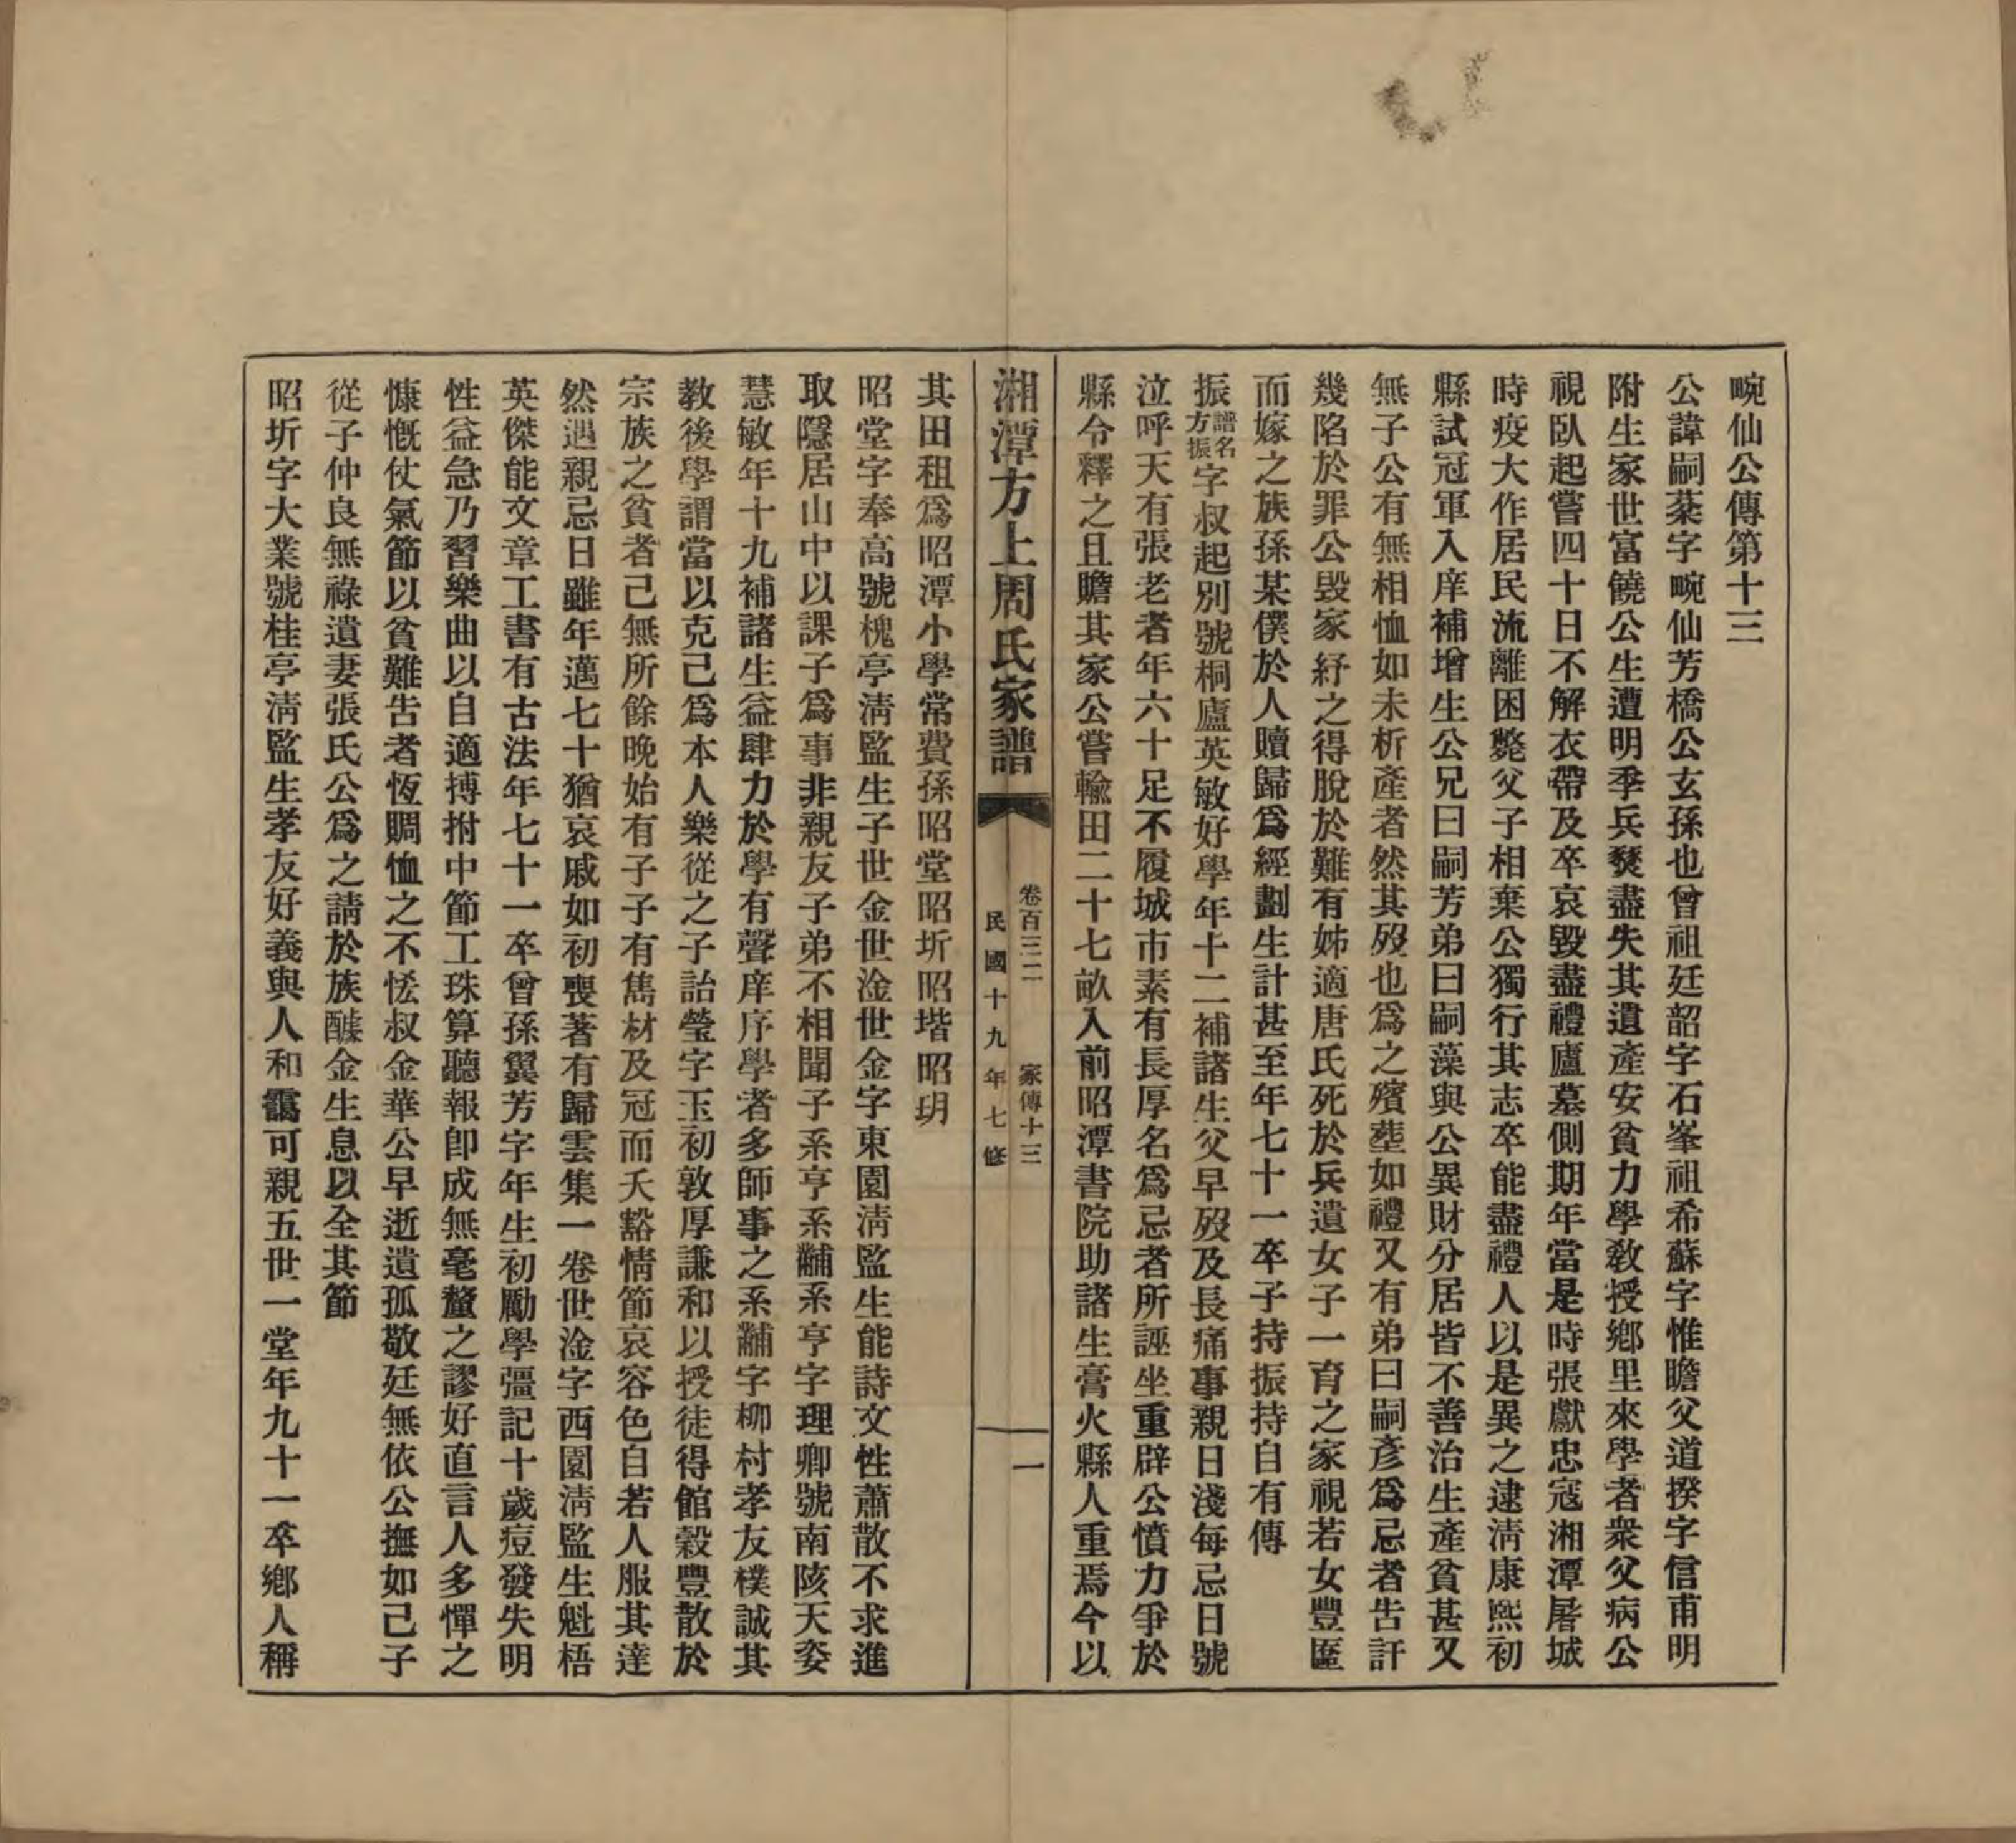 畹仙公傳第十三
公諱嗣蘂字畹仙芳橋公玄孫也曾祖廷韶字石峯祖希蘇字惟瞻父道揆字信甫明
附生家世富饒公生遭明季兵燹盡失其遺產安貧力學教授鄉里來學者衆父病公
視臥起嘗四十日不解衣帶及卒哀毀盡禮廬墓側期年當是時張獻忠寇湘潭屠城
時疫大作居民流離困斃父子相棄公獨行其志卒能盡禮人以是異之逮淸康熙初
縣試冠軍入庠補增生公兄曰嗣芳弟曰嗣藻與公異財分居皆不善治生產貧甚又
無子公有無相恤如未析產者然其歿也爲之殯塟如禮又有弟曰嗣彥爲忌者告訐
幾陷於罪公毀家紓之得脫於難有姊適唐氏死於兵遺女子一育之家視若女豐匳
而嫁之族孫某僕於人贖歸爲經劃生計甚至年七十一卒子持振持自有傳
振譜名方振字叔起別號桐廬英敏好學年十二補諸生父早歿及長痛事親日淺每忌日號
泣呼天有張老者年六十足不履城市素有長厚名爲忌者所誣坐重辟公憤力爭於
縣令釋之且贍其家公嘗輸田二十七畝入前昭潭書院助諸生膏火縣人重焉今以
湘潭方上周氏家譜
卷百三二 家傳十三
一
民國十九年七修
其田租爲昭潭小學常費孫昭堂昭圻昭堦昭玥
昭堂字奉高號槐亭淸監生子世金世淦世金字東園淸監生能詩文性蕭散不求進
取隱居山中以課子爲事非親友子弟不相聞子系亨系黼系亨字理卿號南陔天姿
慧敏年十九補諸生益肆力於學有聲庠序學者多師事之系黼字柳村孝友樸誠其
教後學謂當以克己爲本人樂從之子詒瑩字玉初敦厚謙和以授徒得館穀豐散於
宗族之貧者己無所餘晚始有子子有雋材及冠而夭豁情節哀容色自若人服其達
然遇親忌日雖年邁七十猶哀戚如初喪著有歸雲集一卷世淦字西園淸監生魁梧
英傑能文章工書有古法年七十一卒曾孫翼芳字年生初勵學彊記十歲痘發失明
性益急乃習樂曲以自適搏拊中節工珠算聽報卽成無毫釐之謬好直言人多憚之
慷慨仗氣節以貧難告者恆賙恤之不恡叔金華公早逝遺孤敬廷無依公撫如己子
從子仲良無祿遺妻張氏公爲之請於族醵金生息以全其節
昭圻字大業號桂亭淸監生孝友好義與人和靄可親五世一堂年九十一卒鄉人稱